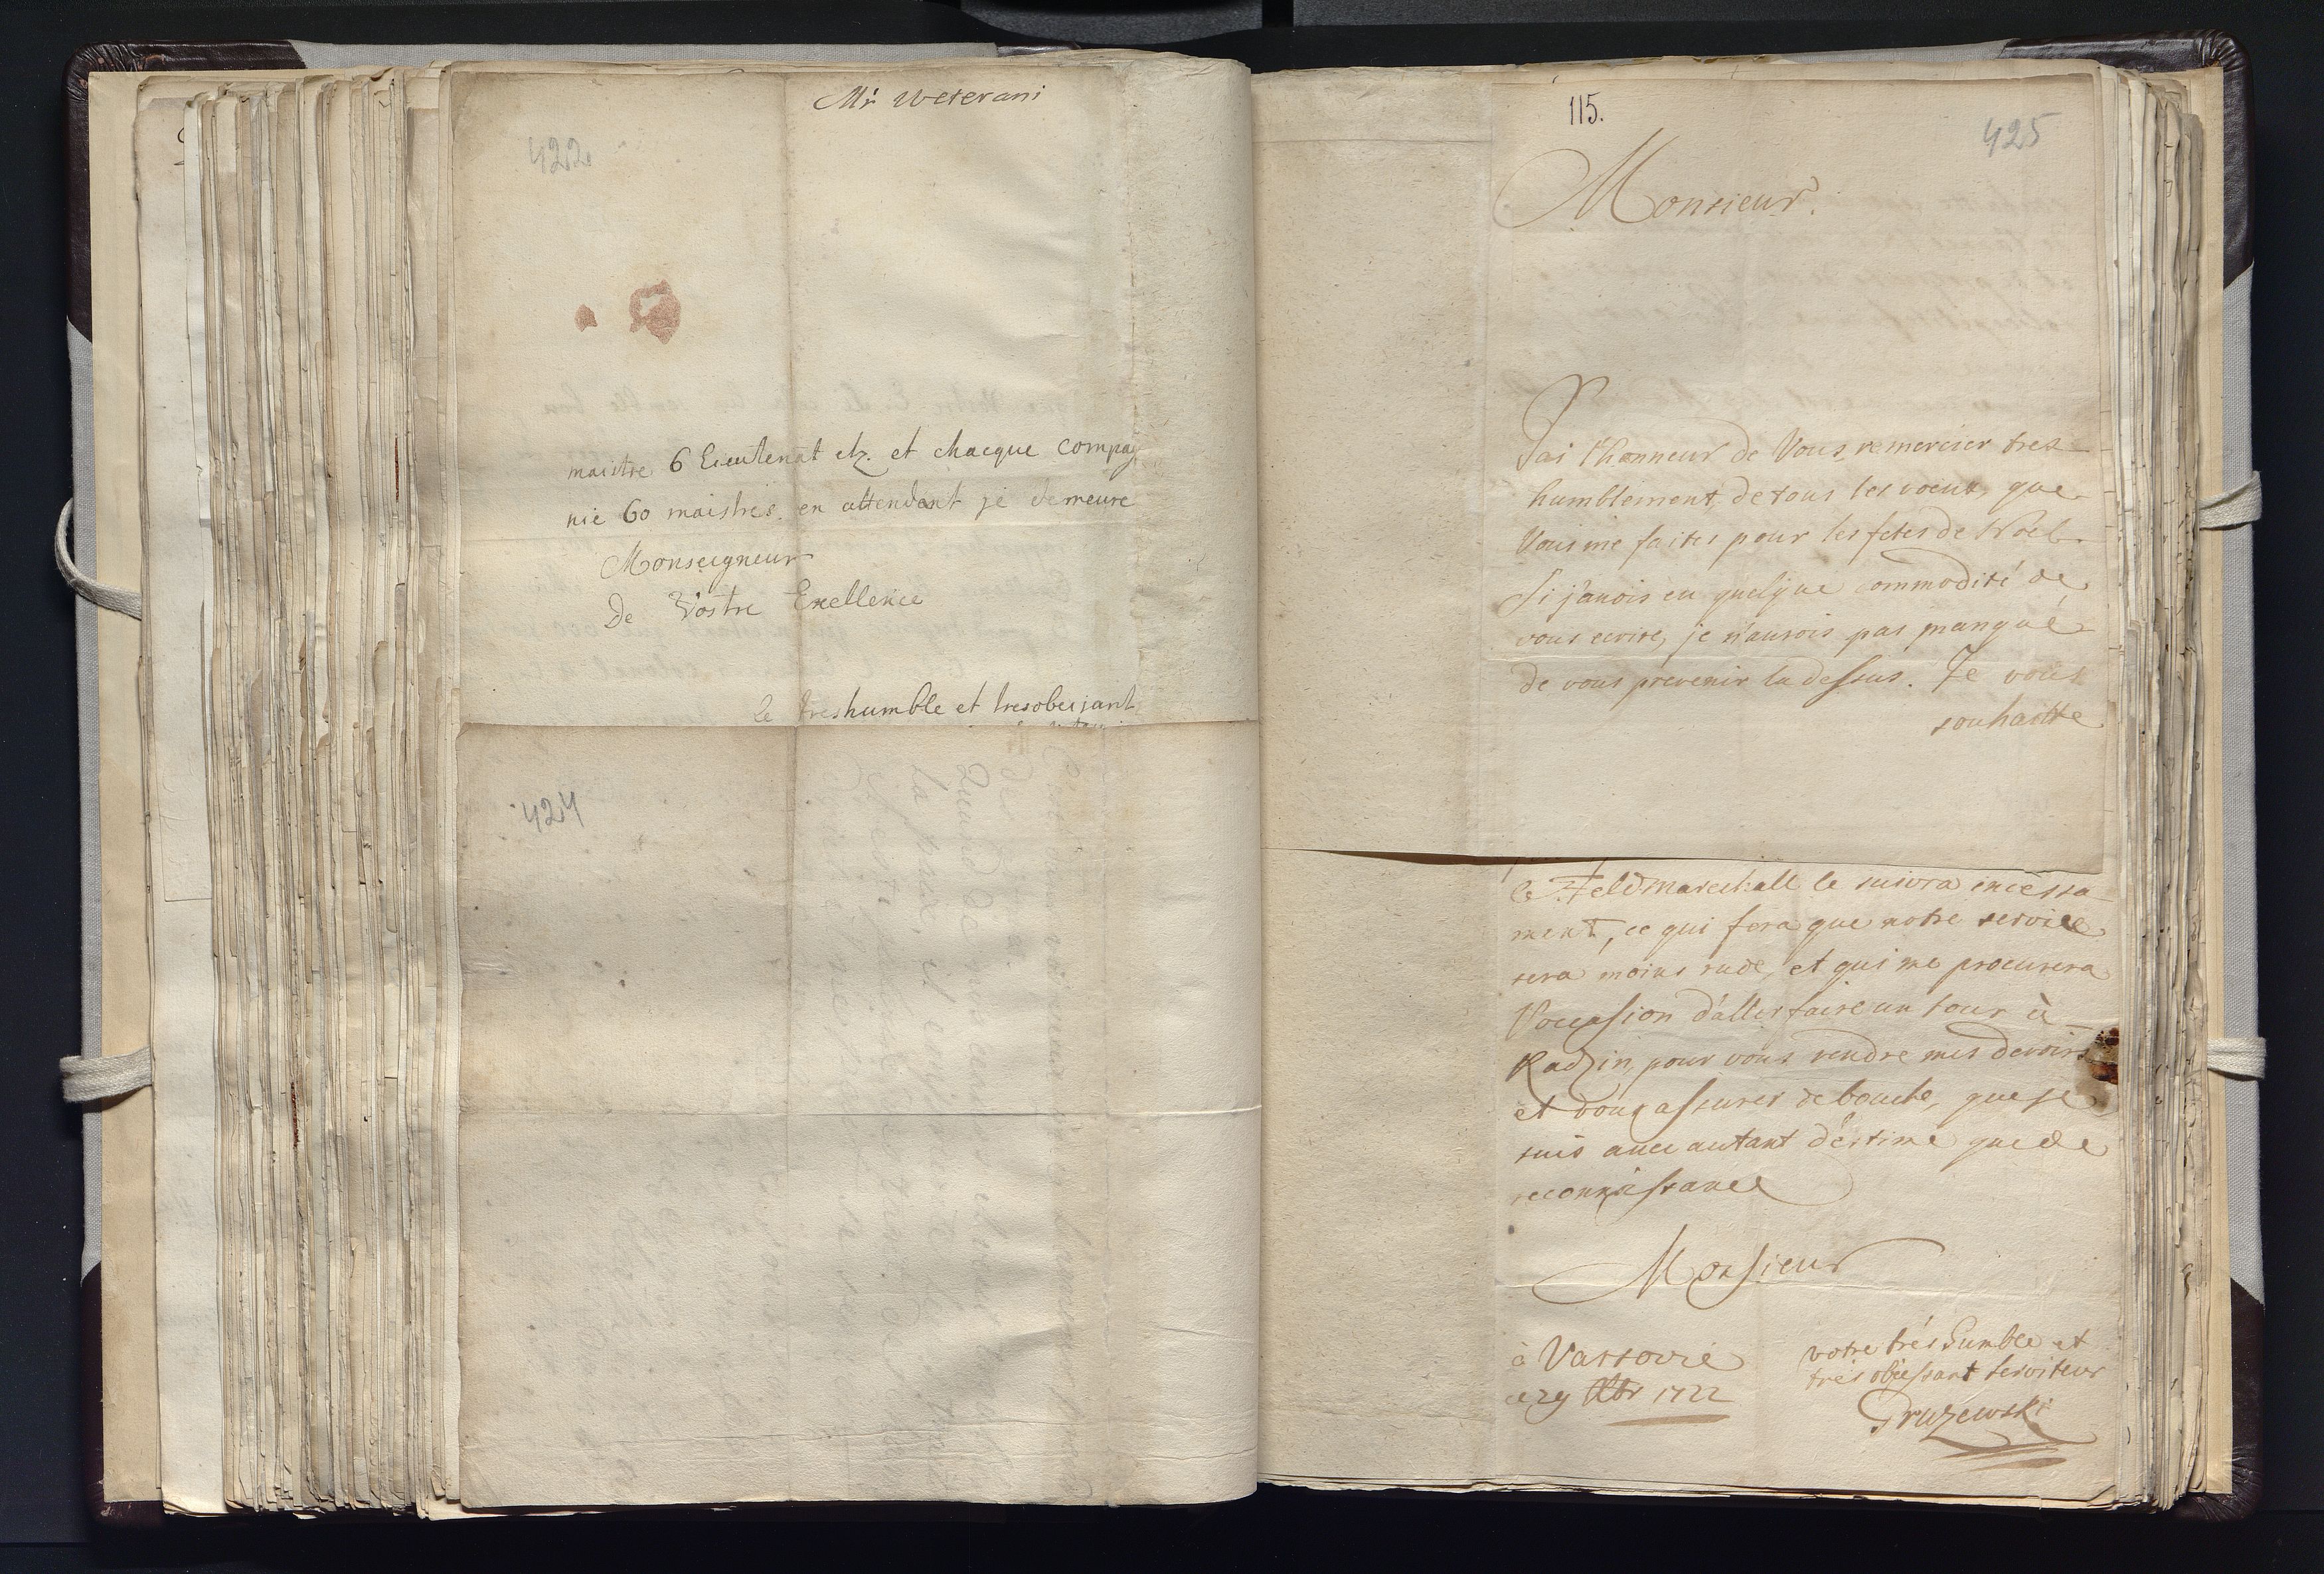 Mr Weterani
422
maistre 6 Lieutenãt etz. et chacque compag
nie 60 maistres en attendant je demeure
Monseigneur
De Vostre Exellence
le treshumble et tresobeijant
424
115.
425
Monsieur.
J'ai l'honneur de Vous remercier tres
humblement, de tous les voeux, que
Vous me faites pour les fetes de Noel.
Si j'auois eu quelque commodité de
vous ecrire, je n'aurois pas manqué
de vous prevenir la dessus. Je vous
souhaitte
le Feldmareschall le suivra incessa
ment, ce qui fera que notre service
sera moins rude, et qui me procurera
l'occasion d'aller faire un tour à
Radzin, pour vous rendre mes devoirs
et vous assurer de bouche, que je
suis avec autant d'estime que de
reconnaissance
Monsieur
à Varsovie
ce 29 Xbr 1722
votre trés humble et
trés obeissant serviteur
Pruzewski